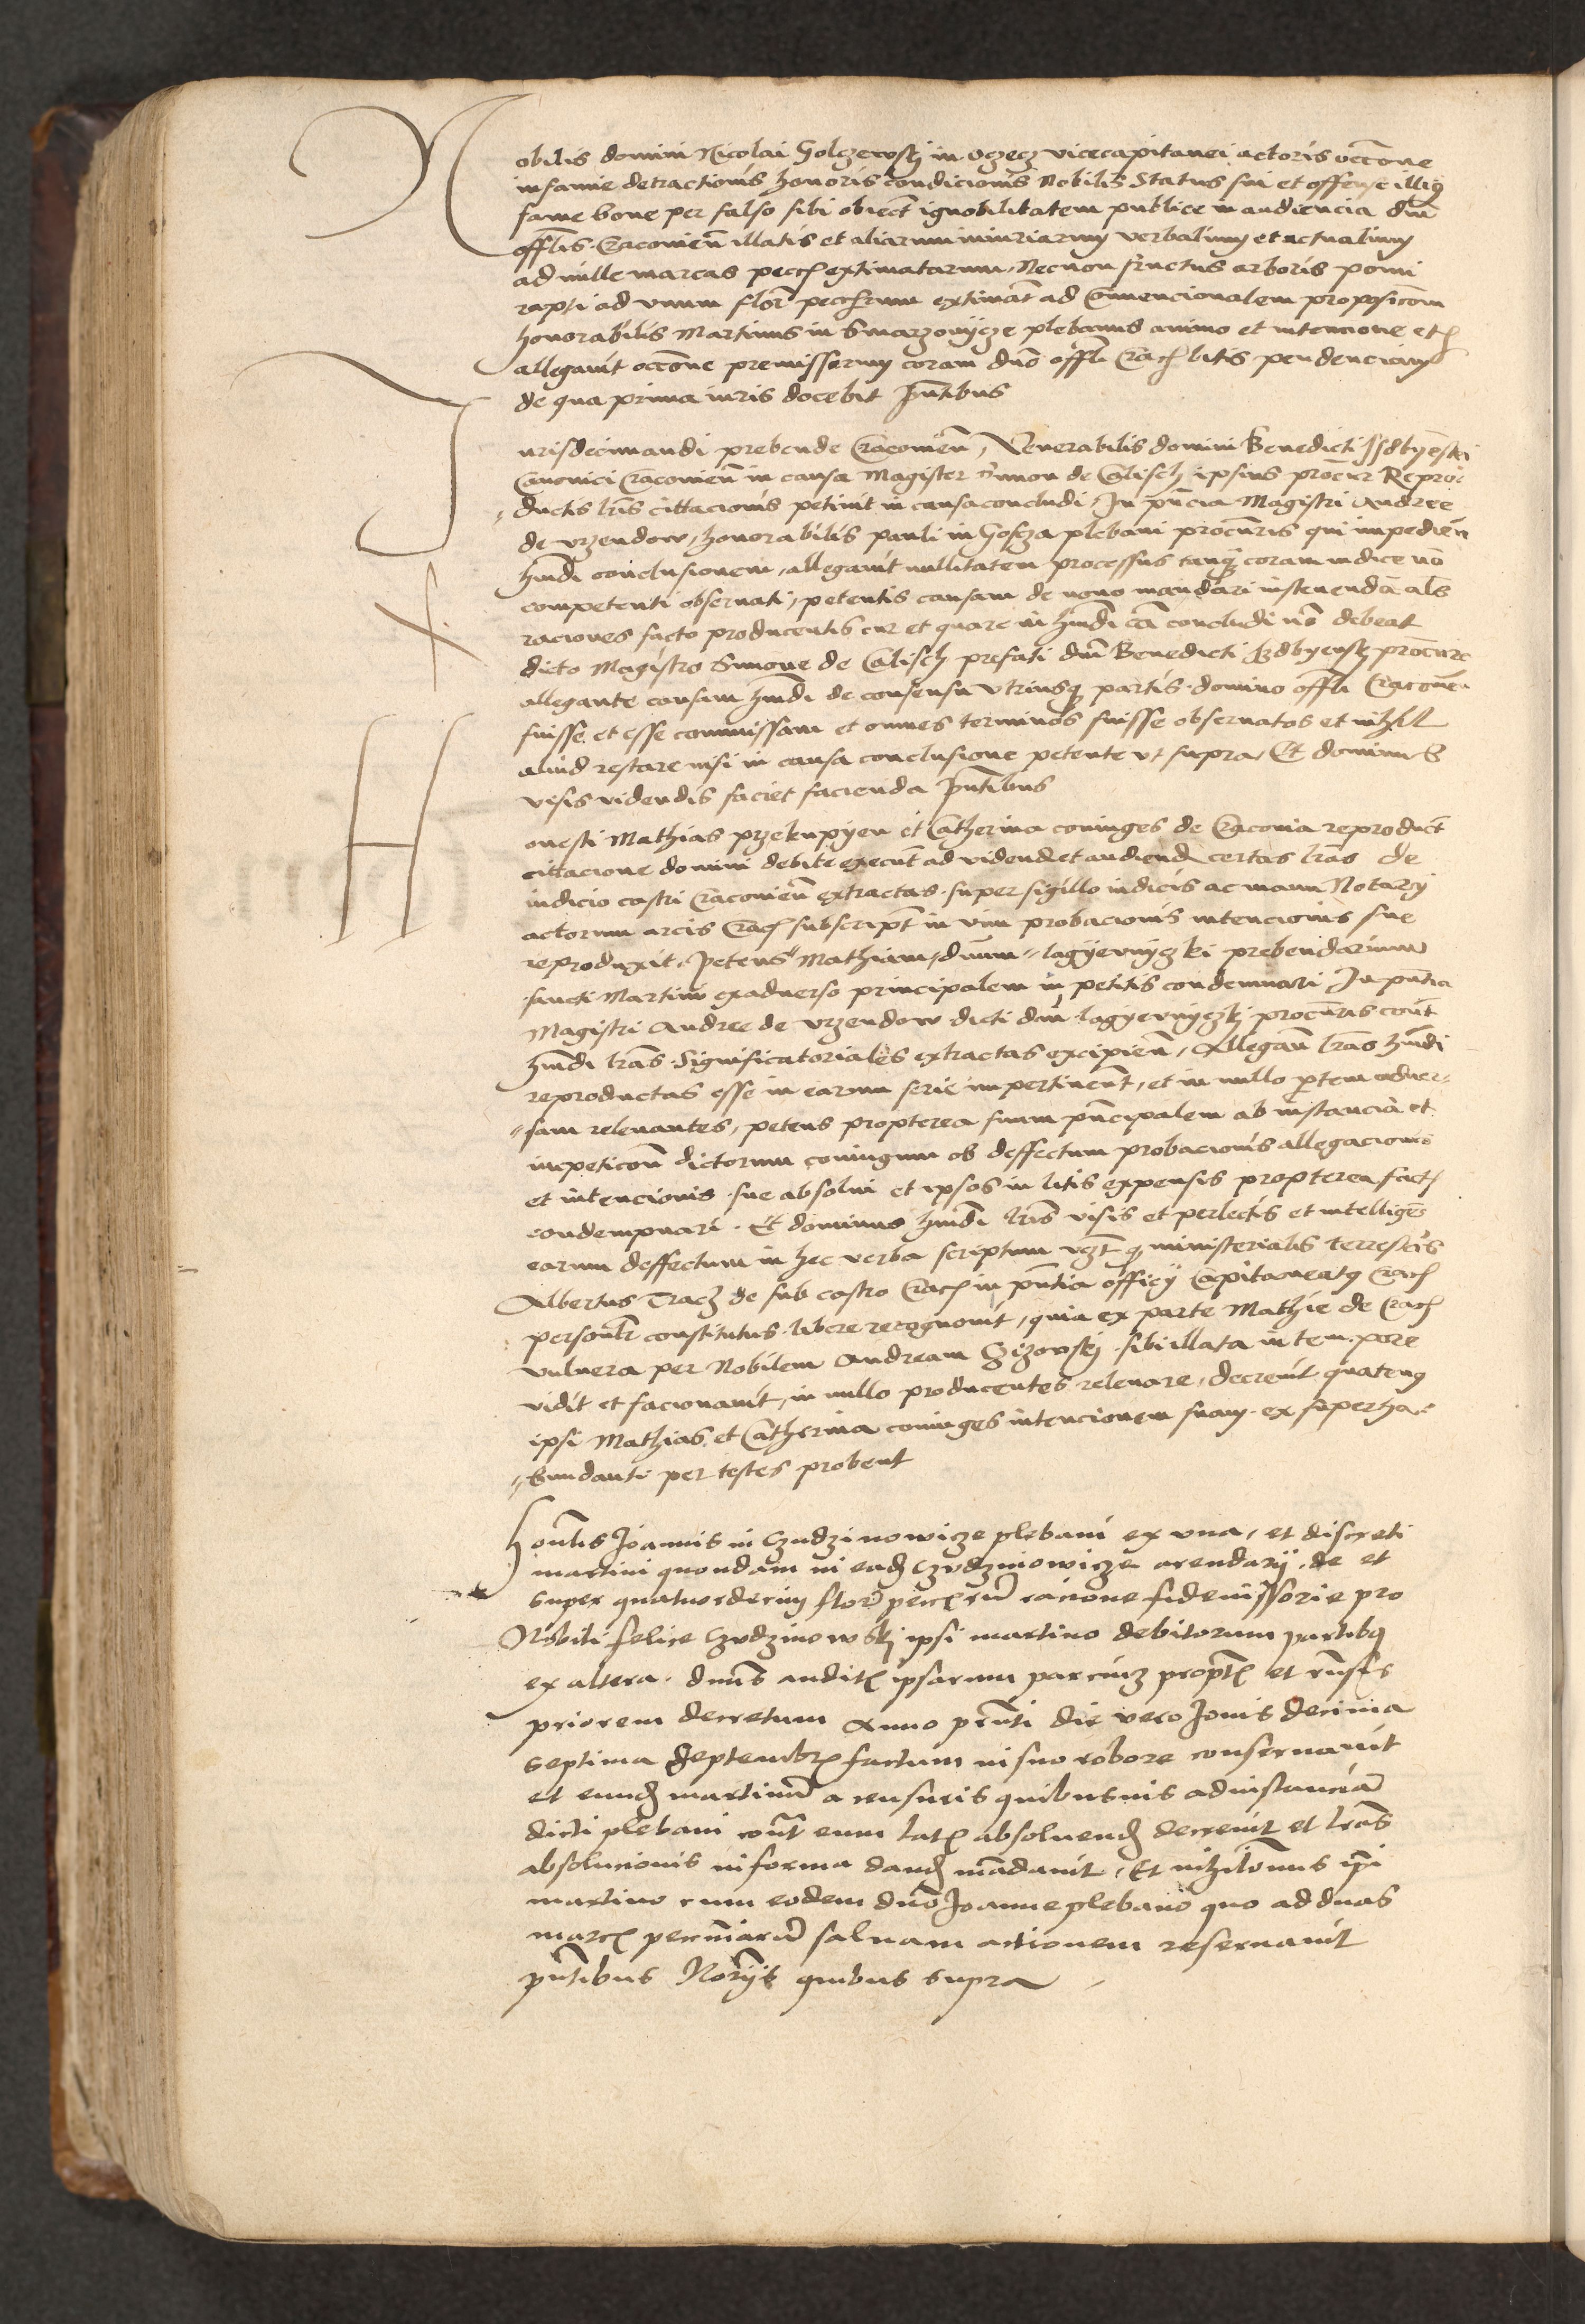 Nobilis domini Nicolai Golczewskj in Oczecz vicecapitanei actoris occōne
infamie detractionis honoris condicionis Nobilis Status sui et offense illiꝰ
fame bone per falso sibi obiect ignobilitatem publice in audiencia dnī
offlīs Cracovieñ illatis et aliarum iniuriarum verbalium et actualium
ad mille marcas pecc extimatarum, Necnon fructus arboris pomi
rapti ad vnum flor peccrum extimat ad Conuencionalem proposicōm
honorabilis Martinus in plebanus animo et intencione etc
allegauit occōne premissorum coram dnō offlī Crac litis pendenciam
de qua prima iuris docebit pntībus
Iurisdecimandi prebende Cracovieñ, Venerabilis domini Benedicti Isdbyeski
Canonici Cracovieñ in causa Magister Simon de Calisch ipsius procur Repro
ductis lrīs cittacionis petiuit in causa concludi, In pñcia Magistri Andree
de Vrzendow, honorabilis pauli in Goscza plebani procuris qui impedieñ
hmōdi conclusionem, allegauit nullitatem processus tanq coram iudice nō
competenti obseruati, petentis causam de nouo mandari als
raciones facto producentis cur et quare in hmōdi cā concludi nō debeat
dicto Magistro Simone de Calisch prefati dnī Benedicti procure
allegante causam hmōdi de consensu vtriusq partis domino offlī Cracoñ
fuisse et esse commissam et omnes terminos fuisse obseruatos et nihil
aliud restare nisi in causa conclusione petente vt supra, Et dominus
visis videndis faciet facienda pntībus
Honesti Mathias przekupyen et Catherina coniuges de Cracouia reproduct
cittacione domini debite execut ad videnđ et audienđ certas lrās de
iudicio castri Cracovieñ extractas super sigillo iudicis ac manu Notarij
actorum arcis Crac subscript in vim probacionis intencionis sue
reproduxit. Petens Mathiam, dnum Lagyewnyczki prebendarium
sancti Martini exaduerso principalem in petitis condemnari In pñtia
Magistri Andree de Vrzendow dicti dnī Lagyewnyczkj procuris cont
hmōdi lrās Significatoriales extractas excipieñ, Allegañ lrās hmōdi
reproductas esse in earum serie impertinent, et in nullo ptem aduer
sam releuantes, petens propterea suum pncipalem ab instancia et
impeticoñ dictorum coniugum ob deffectum probacionis allegacionis
et intencionis sue absolui et ipsos in litis expensis propterea fact
condempnari. Et dominus hmōdi lrīs visis et perlectis et intelligēs
earum deffectum in hec verba scriptum vzt q ministerialis terrestris
Albertus Tracz de sub castro Crac in pñtia officij Capitaneatꝰ Crac
personlr constitutus libere recognouit, quia ex parte Mathie de Crac
vulnera per Nobilem Andream Czizowskj sibi illata in tempore
vidit et facionauit, in nullo producentes releuare, decreuit quatenꝰ
ipsi Mathias et Catherina coniuges intencionem suam ex superha
bundanti per testes probent
Honlīs Joannis in Czudzinowicze plebani ex vna, et discreti
martini quondam in eađ Czvdzinowicze arendarij de et
super quatuordecim flor peccrū racione fideiussorie pro
Nobili felice Czvdzinowskj ipsi martino debitorum partibꝰ
ex altera. dnūs audit ipsarum parcium propt et rñsis
priorem decretum Anno prñti die vero Jouis decima
septima Septembr factum in suo robore conseruauit
et eunđ martinū a censuris quibusuis ad instanciā
dicti plebani cont eum lat absoluenđ decreuit et lrās
absolucionis in forma danđ mādauit, Et nihilomus ipī
martino cum eodem dnō Joanne plebano quo ad duas
marc pecuniarū saluam actionem reseruauit
pntībus Norijs quibus supra